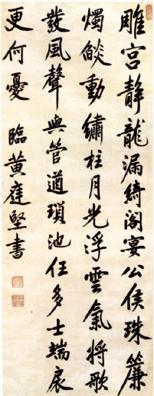 雕宫静龍漏綺閣宴公侯珠簾
燭燄動繡柱月光浮雲氣将歌
發風聲與管遒瑣池任多士端扆
更何憂 臨黄庭堅書